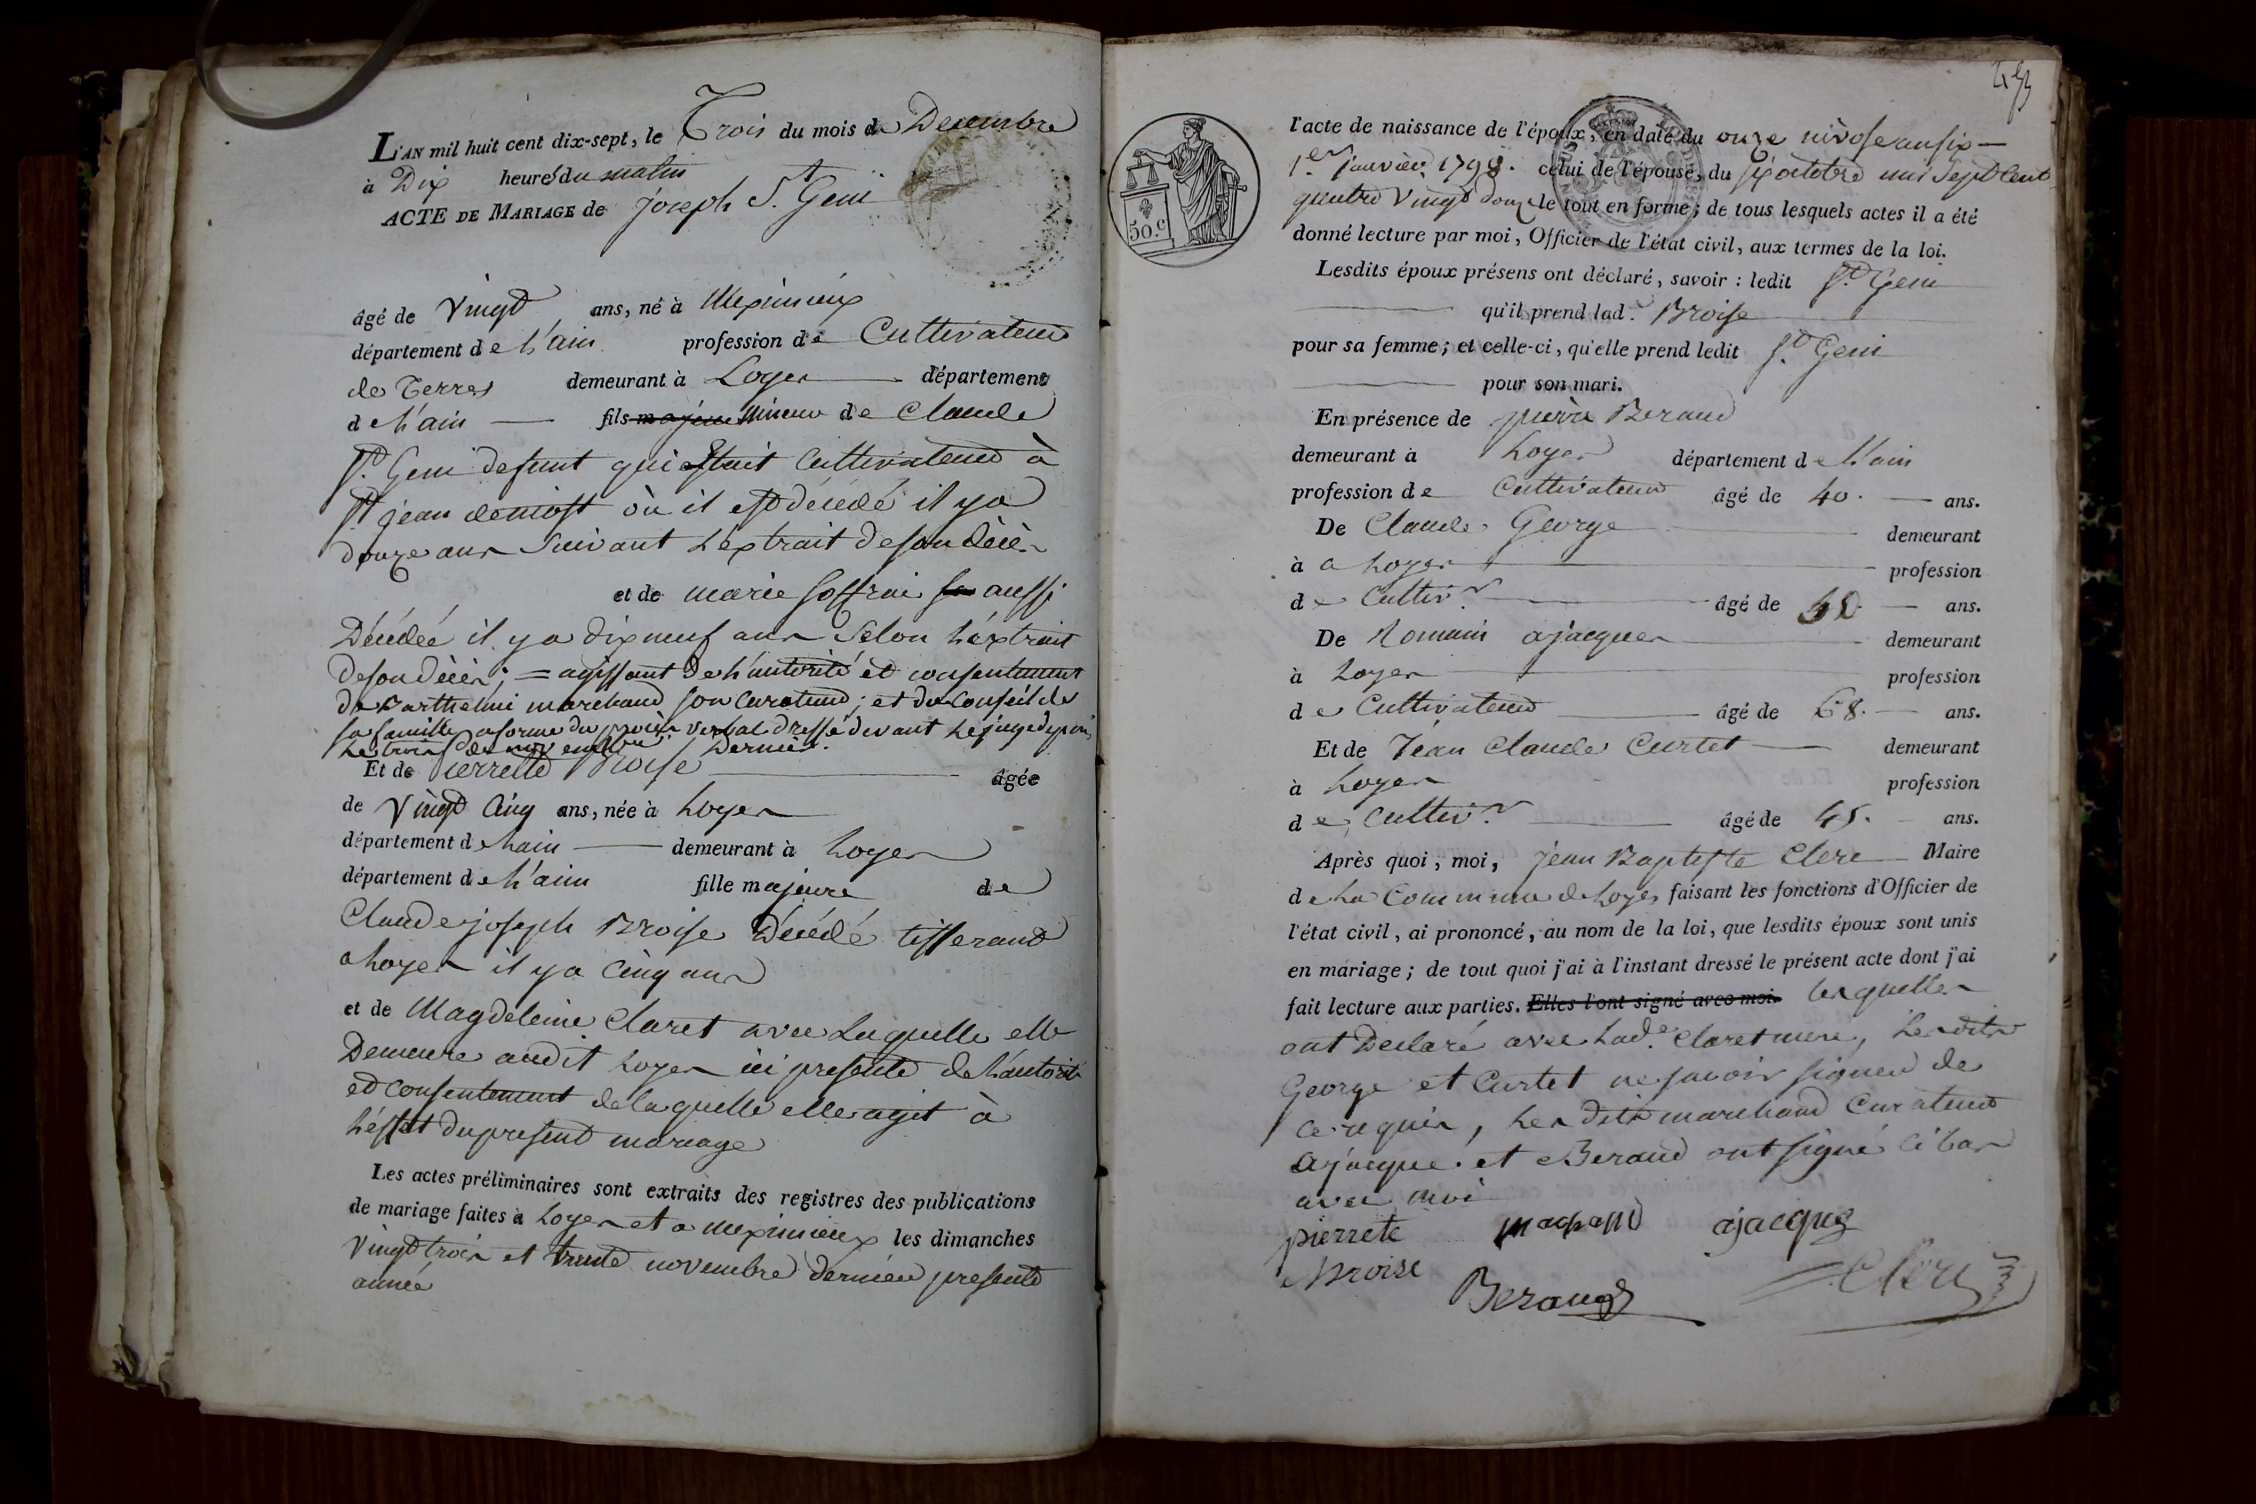 L'AN mil huit cent dix-sept, le Trois du mois de Decembre
à Dix heures du matin
ACTE DE MARIAGE de joseph St. Geni
âgé de vingt ans, né à Meximieux
département de l'ain profession de Cultivateur
de Terres demeurant à Loyes département
de l'ain fils majeur mineur de Claude
St. Geni defunt qui etait cultivateur à
St jean deniost où il est décédé il y a
douze ans suivant l'extrait de son décès
et de marie joffrai aussi
Décédée il y a dix neuf ans selon l'éxtrait
de son décès; = agissant de l'autorité et consentement
de Barthelmi marchand son curateur; et du conseil de
sa famille a forme du procès verbal dressé devant le juge de paix
le trois de novembre Dernier.
Et de Pierrette Broise âgée
de vingt cinq ans, née à Loyes
département de l'ain demeurant à Loyes
département de l'ain fille majeure de
Claude joseph Broise Décédé tisserand
a Loyes il y a cinq ans
et de Magdeleine Claret avec laquelle elle
Demeure audit Loyes ici presente de l'autorité
et consentement de laquelle elle agit à
l'effet du present mariage
Les actes préliminaires sont extraits des registres des publications
de mariage faites à Loyes et a meximieux les dimanches
vingt trois et trente novembre dernier presente
année
l'acte de naissance de l'époux, en date du onze nivose an six
1er janvier 1798. celui de l'épouse, du octobre mil sept cent
quatre vingt douze le tout en forme; de tous lesquels actes il a été
donné lecture par moi, Officier de l'état civil, aux termes de la loi.
50.c
Lesdits époux présens ont déclaré, savoir : ledit St. Geni
qu'il prend lad. Broise
pour sa femme; et celle-ci, qu'elle prend ledit St. Geni
pour son mari.
En présence de pierre Beraud
demeurant à Loyes département de l'ain
profession de Cultivateur âgé de 40. ans.
De Claude George demeurant
à a Loyes profession
de Cultivr. âgé de ans.
De Romain ajacques demeurant
à Loyes profession
de Cultivateur âgé de 68. ans.
Et de Jean Claude Curtet demeurant
à Loyes profession
de Cultivr. âgé de 45. ans.
Après quoi, moi, jean Baptiste Clere Maire
de la Commune de Loyes faisant les fonctions d'Officier de
l'état civil, ai prononcé, au nom de la loi, que lesdits époux sont unis
en mariage; de tout quoi j'ai à l'instant dressé le présent acte dont j'ai
fait lecture aux parties. Elles l'ont signé avec moi. lesquelles
ont Declaré avec lade. Claret mere, les dits
George et Curtet ne savoir signer de
ce requis, les dits marchand curateur
ajacque et Beraud ont signé ci bas
avec moi
pierrete machand ajacques
Broise
Beraud Clere